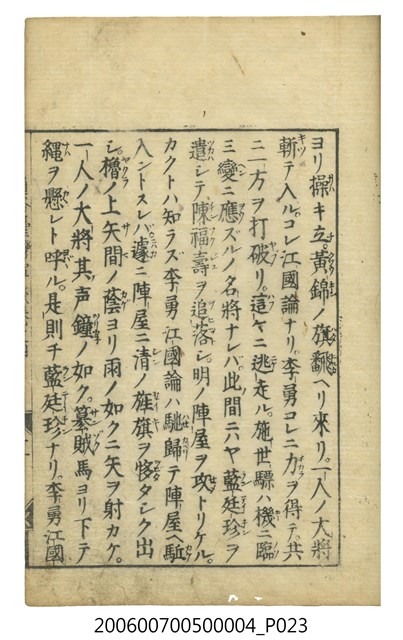 ヨリ操キ立。黄錦ノ旗翻ヘリ來リ。一人ノ大將
斬テ入ル。コレ江國論ナリ。李勇コレニ力ヲ得テ。共
ニ一方ヲ打破リ。這々ニ逃走ル。施世驃ハ機ニ臨
三變ニ應ズルノ名將ナレバ。此間ニハヤ藍廷珍ヲ
遣シテ陳福壽ヲ追落シ。明ノ陣屋ヲ攻トリケル。
カクトハ知ラズ李勇江國論ハ馳歸テ陣屋ヘ駈
入ントスレバ遽ニ陣屋ニ清ノ旌旗ヲ夥タシク出
シ。櫓ノ上矢間ノ蔭ヨリ雨ノ如クニ矢ヲ射カケ。
一人ノ大將其声鐘ノ如ク。簒賊馬ヨリ下テ
縄ヲ懸レト呼ル。是則チ藍廷珍ナリ。李勇江國
200600700500004_P023